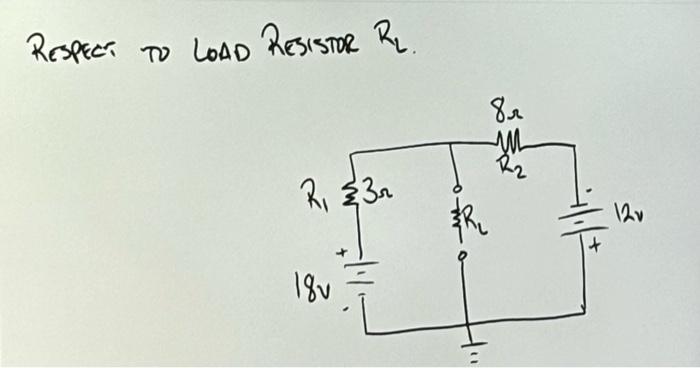 RESPECT TO LOAD RESISTOR RL.
8Ω
R2
R1 3Ω
RL
- 12v
+
+
18v
-